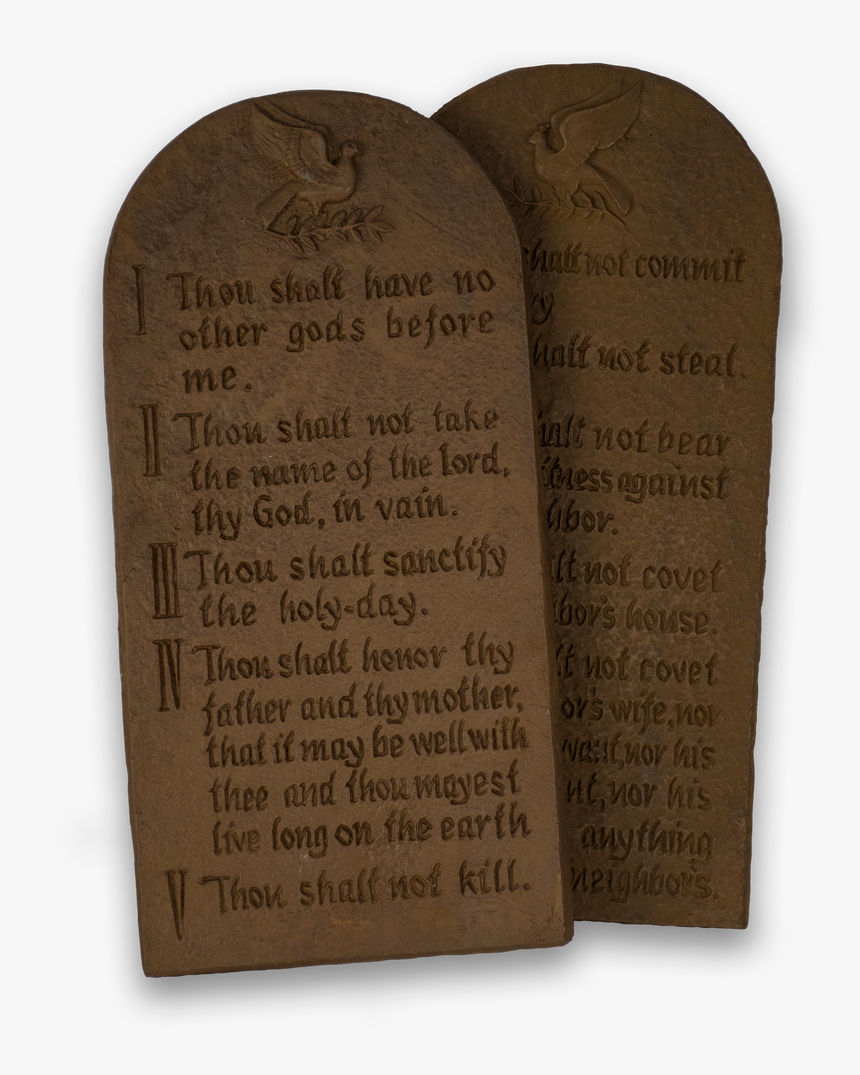 I Thou shalt have no
other gods before
me.
II Thou shalt not take
the name of the Lord,
thy God, in vain.
III Thou shalt sanctify
the holy-day.
IV Thou shalt honor thy
father and thy mother,
that it may be well with
thee and thou mayest
live long on the earth
V Thou shalt not kill.
shalt not commit
ry
halt not steal.
alt not bear
tness against
hbor.
lt not covet
bor's house.
lt not covet
or's wife, nor
vant, nor his
nt, nor his
anything
neighbor's.